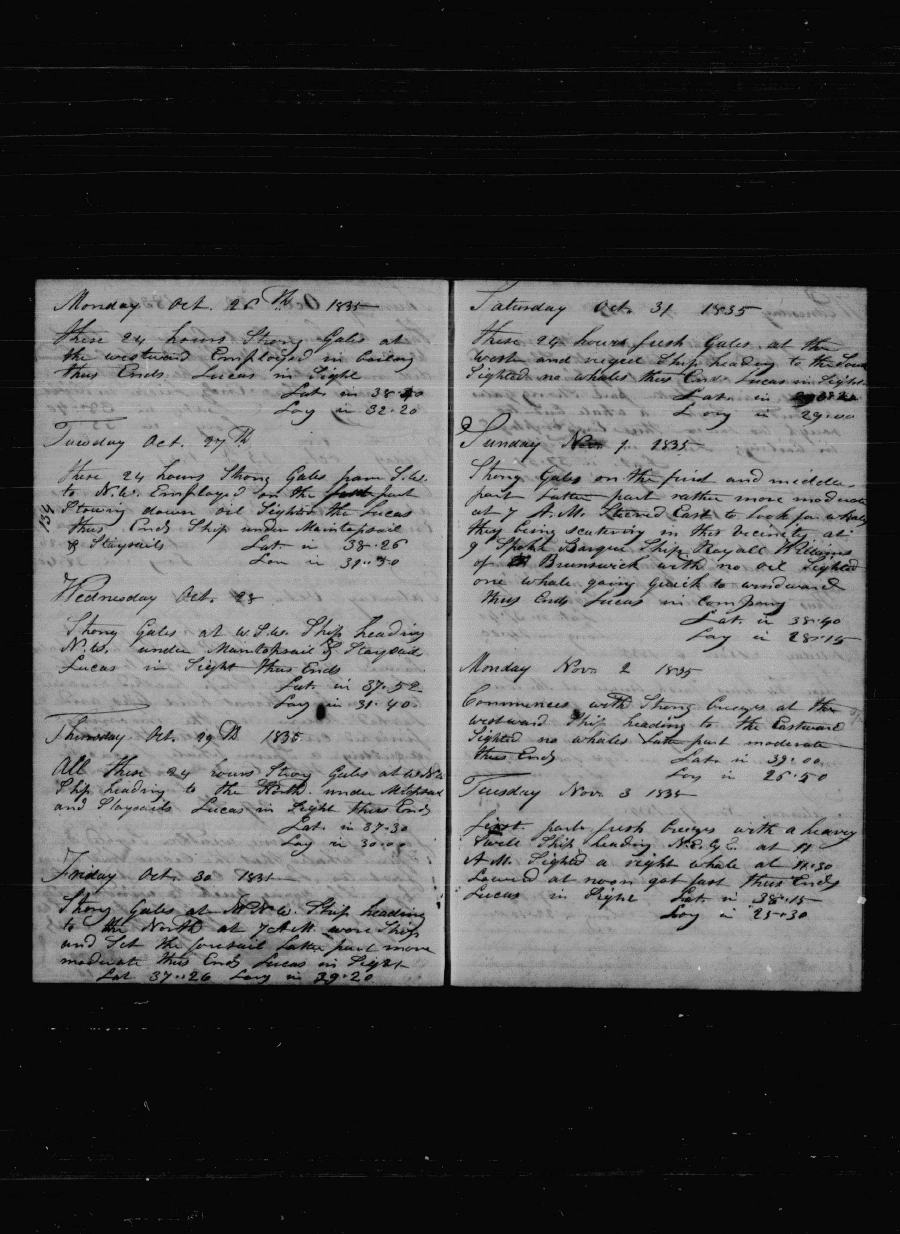 Monday Oct. 26th 1835
these 24 hours Strong Gales at
the westward Employed in
thus Ends Lucas in Sight
Lat. in 38·40
Log in 32·20
Tuesday Oct. 27th
these 24 hours Strong Gales from S.W.
to N.W. Employed on the first part
Stowing down oil Sighted the Lucas
thus Ends Ship under Maintopsail
& Staysails Lat. in 38·26
Lon in
134
Wednesday Oct. 28
Strong Gales at W.S.W. Ship heading
N.W. under Maintopsail & Staysail
Lucas in Sight thus Ends
Lat. in 37·52
Log in 31·40
Thursday Oct. 29th 1835
All these 24 hours Strong Gales at
Ship heading to the North under
and Staysails Lucas in Sight thus Ends
Lat. in 37·30
Log in 30·00
Friday Oct. 30 1835
Strong Gales at N.N.W. Ship heading
to the North at 7 A.M. wore Ship
and Set the foresail Latter part more
moderate thus Ends Lucas in Sight
Lat 37··26 Log in 29·20
Saturday Oct. 31 1835
These 24 hours fresh Gales at the
West and Ship heading to the
Sighted no whales thus Ends Lucas in Sight
Lat. in
Long in 29·00
Sunday Nov. 1. 1835
Strong Gales on the first and middle
part Latter part rather more moderate
at 7 A.M. Steered East to look for whales
they being in this vicinity at
9 Spoke Barque Ship Royall Williams
of Brunswick with no oil Sighted
one whale going quick to windward
thus Ends Lucas in Company
Lat. in 38·40
Log in 28·15
Monday Nov. 2 1835
Commences with Strong breezes at the
westward Ship heading to the Eastward
Sighted no whales Latter part moderate
thus Ends Lat. in 39·00
Log in 26·50
Tuesday Nov. 3 1835
first part fresh breezes with a heavy
Swell Ship heading at 11
A.M. Sighted a right whale at 11·30
Lowered at noon got fast thus Ends
Lucas in Sight Lat. in 38·15
Log in 25·30